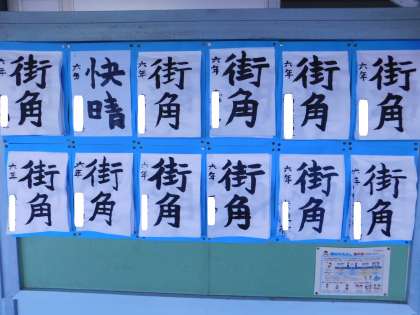 街角
六年
快晴
六年
街角
六年
街角
六年
街角
六年
街角
六年
街角
六年
街角
六年
街角
六年
街角
六年
街角
六年
街角
六年